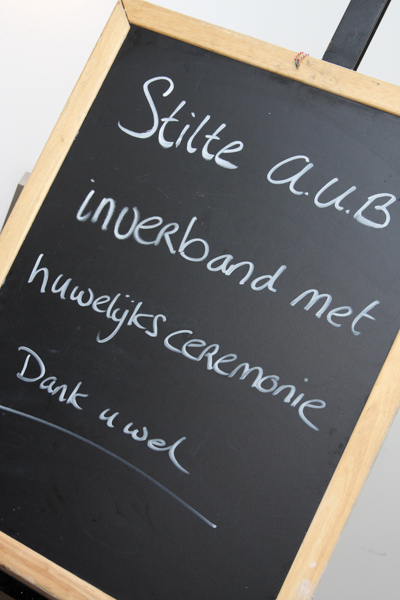 Stilte a.u.B
inverband met
huwelijks ceremonie
Dank u wel